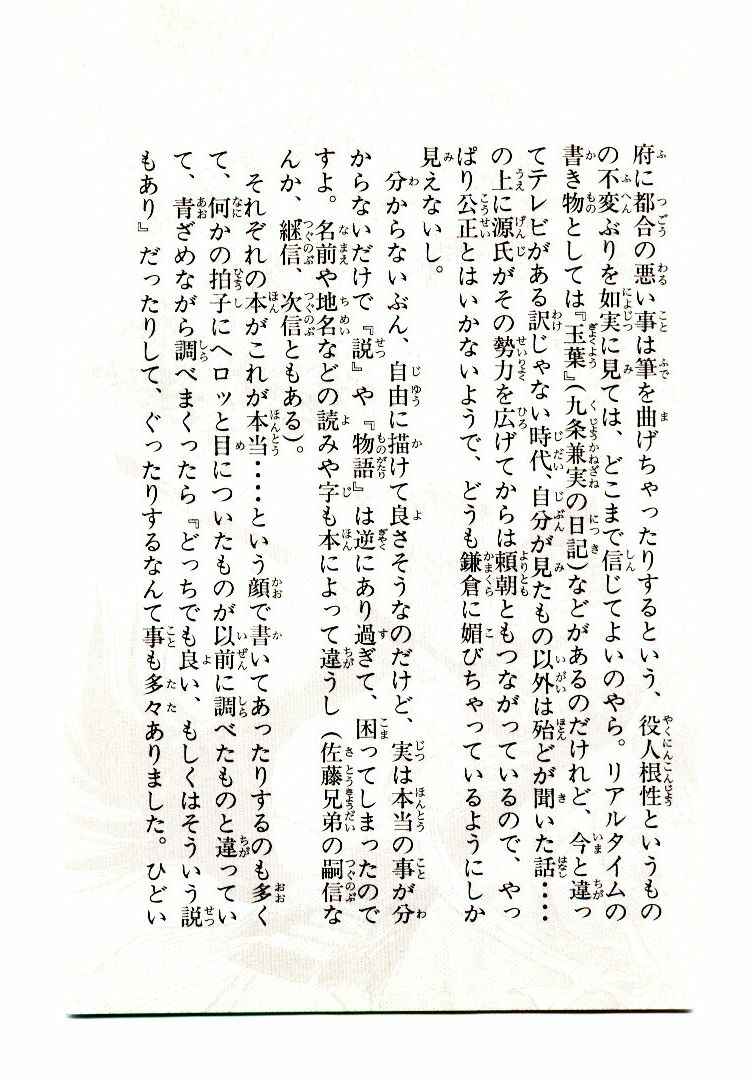 府に都合の悪い事は筆を曲げちゃったりするという、役人根性というもの
の不変ぶりを如実に見ては、どこまで信じてよいのやら。リアルタイムの
書き物としては『玉葉』(九条兼実の日記)などがあるのだけれど、今と違っ
てテレビがある訳じゃない時代、自分が見たもの以外は殆どが聞いた話‥‥
の上に源氏がその勢力を広げてからは頼朝ともつながっているので、やっ
ぱり公正とはいかないようで、どうも鎌倉に媚びちゃっているようにしか
見えないし。
　分からないぶん、自由に描けて良さそうなのだけど、実は本当の事が分
からないだけで『説』や『物語』は逆にあり過ぎて、困ってしまったので
すよ。名前や地名などの読みや字も本によって違うし(佐藤兄弟の嗣信な
んか、継信、次信ともある)。
　それぞれの本がこれが本当‥‥という顔で書いてあったりするのも多く
て、何かの拍子にヘロッと目についたものが以前に調べたものと違ってい
て、青ざめながら調べまくったら『どっちでも良い、もしくはそういう説
もあり』だったりして、ぐったりするなんて事も多々ありました。ひどい